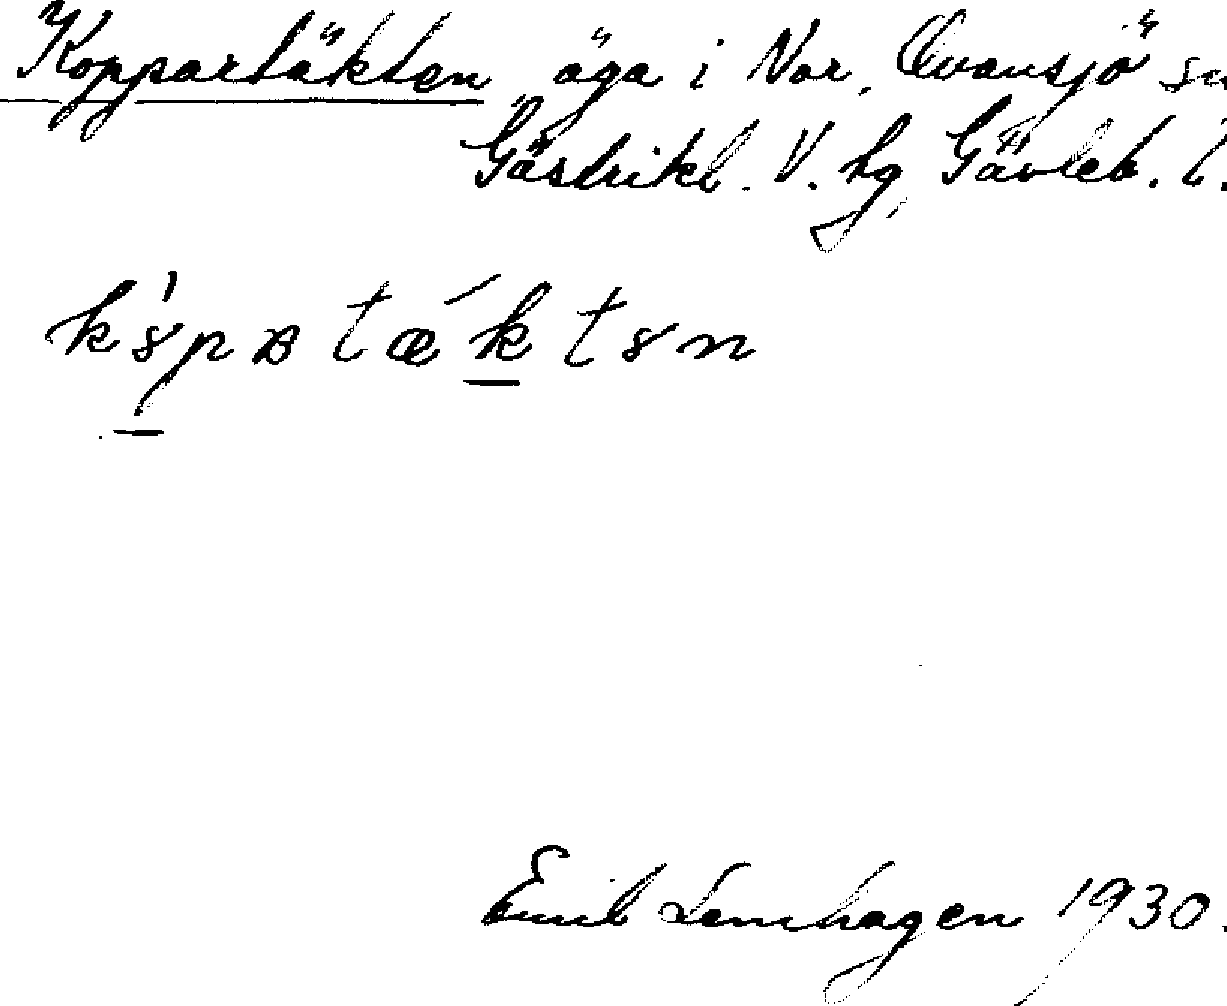 Koppartäkten äga i Nor, Ovansjö sn
Gästrikl. V. hg, Gävleb. l.
Emil Lemhagen 1930.